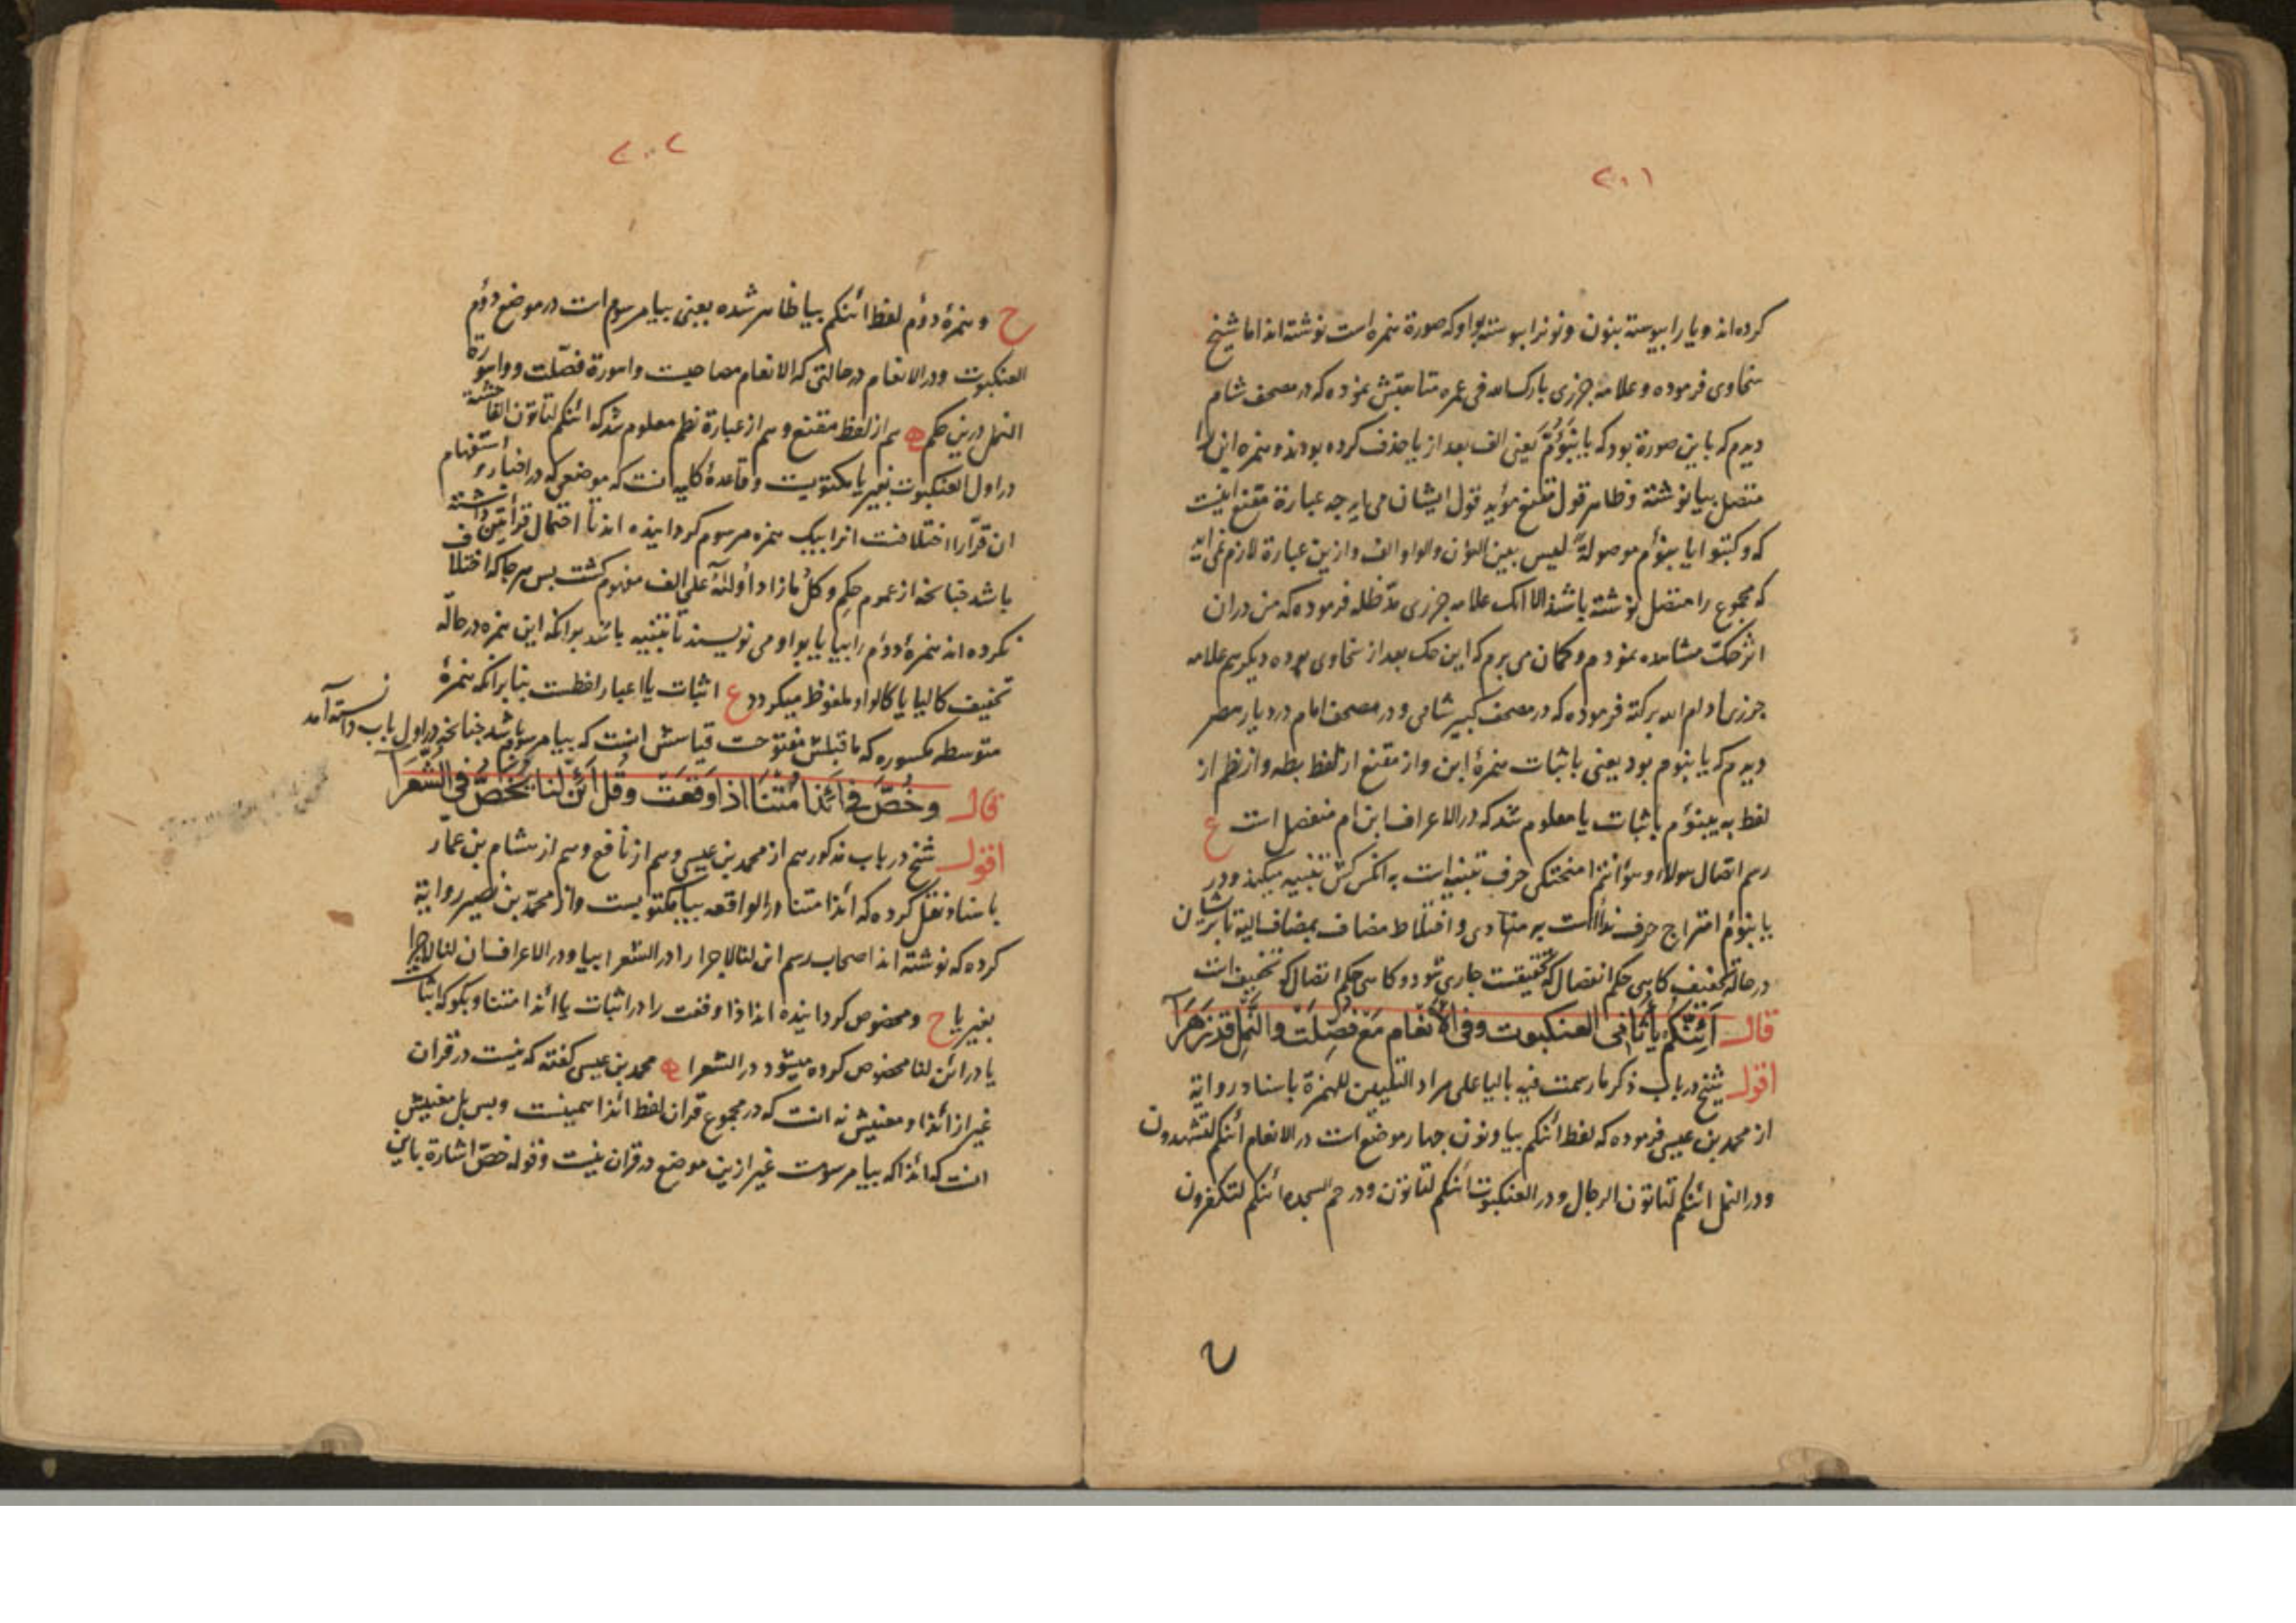 ٢٠١
کرده‌اند و یا را پیوسته بنون و نونرا پیوسته بواو که صورة همزه است نوشته‌اند اما شیخ
سخاوی فرموده و علامه جزری بارک الله فی عمره متابعتش نموده که در مصحف شام
دیدم که باین صورة بود که یابنؤم یعنی الف بعد از یا حذف کرده بودند و همزه ابن را
متصل بیا نوشته و ظاهر قول مقنع مؤید قول ایشان می‌آید چه عبارة مقنع اینست
که و کتبوا یا بنؤم موصولة لیس بین النون والواو الف و ازین عبارة لازم نمی‌آید
که مجموع را متصل نوشته باشند الا انک علامه جزری مد ظله فرموده که من در ان
اثر حکّ مشاهده نمودم و کمان می برم که این حک بعد از سخاوی بوده دیکر هم علامه
جزری ادام الله برکته فرموده که در مصحف کبیر شامی و در مصحف امام در دیار مصر
دیدم که یا بنوم بود یعنی باثبات همزهٔ ابن و از مقنع از لفظ بطه و از نظم از
لفظ به یبنؤم باثبات یا معلوم شد که در الاعراف ابن ام منفصل است ع
رسم اتصال هولاء و هؤانتم امتحکی حرف تنبیه است به انکس کش تنبیه میکند و در
یابنؤم امتزاج حرف نداست به منادی و اختلاط مضاف بمضاف الیه تا برشان
در حالة تخفیف کاهی حکم انفصال که تحقیقست جاری شود و کاهی حکم اتصال که تخفیف است
قال اَئِنَّکُم یاً ثانی العنکبوت وفی الاَنعام مَعَ فُصِّلَت والنَّمل قد زَهَرَا
اقول شیخ در باب ذکر ما رسمت فیه بالیا علی مراد التلیین للهمزة باسناد روایة
از محمد بن عیسی فرموده که لفظ ائنکم بیا و نون چهار موضع است در الانعام ائنکم لتشهدون
و در النمل ائنکم لتاتون الرجال و در العنکبوت ائنکم لتاتون و در حم السجده ائنکم لتکفرون
٢٠٢
ح و همزهٔ دوم لفظ ائنکم بیا ظاهر شده یعنی بیا مرسوم است در موضع دوم
العنکبوت و در الانعام در حالتی که الانعام مصاحبست و سورة فصّلت و سورة
النمل درین حکم ه هم از لفظ مقنع و هم از عبارة نظم معلوم شد که ائنکم لتاتون الفاحشة
در اول العنکبوت بغیر یا مکتوبست و قاعدهٔ کلیه انست که موضعی که در اخبار و استفهام
ان قرّا را اختلافست انرا بیک همزه مرسوم کردانیده اند تا احتمال قرائتین داشته
باشد چنانچه از عموم حکم و کل ما زاد اولیه علی الف مفهوم کشت پس هر جا که اختلاف
نکرده اند همزهٔ دوم را بیا یا بواو می نویسند تا تنبیه باشد بر انکه این همزه در حالة
تخفیف کالیا یا کالواو ملفوظ میکردد ع اثبات یا اعبار لفظست بنابرانکه همزهٔ
متوسطه مکسوره که ماقبلش مفتوحست قیاسش انست که بیا مرسوم باشد چنانچه در اول باب دانسته آمد
قال وخُصَّ فی ائذا مُتنَا اذا وَقَعَت وَقُل اَئِنّ لنا یُخَصُّ فی الشُعَرَا
اقول شیخ در باب مذکور هم از محمد بن عیسی و هم از نافع و هم از هشام بن عمار
باسناد نقل کرده که ائذا متنا در الواقعه بیا مکتوبست و از محمد بن نصیر روایة
کرده که نوشته اند اصحاب رسم ائن لنا لاجرا را در الشعرا بیا و در الاعراف ان لنا لاجرا
بغیر یا ح و مخصوص کردانیده اند اذا وقعت را در اثبات یا ائذا متنا و بکو که اثبات
یا در ائن لنا مخصوص کرده میشود در الشعرا ه محمد بن عیسی کفته که نیست در قرآن
غیر از ائذا و معنیش نه انست که در مجموع قران لفظ ائذا همینست و بس بل معنیش
انست که ائذا که بیا مرسومست غیر ازین موضع در قران نیست و قوله خصّ اشارة باین